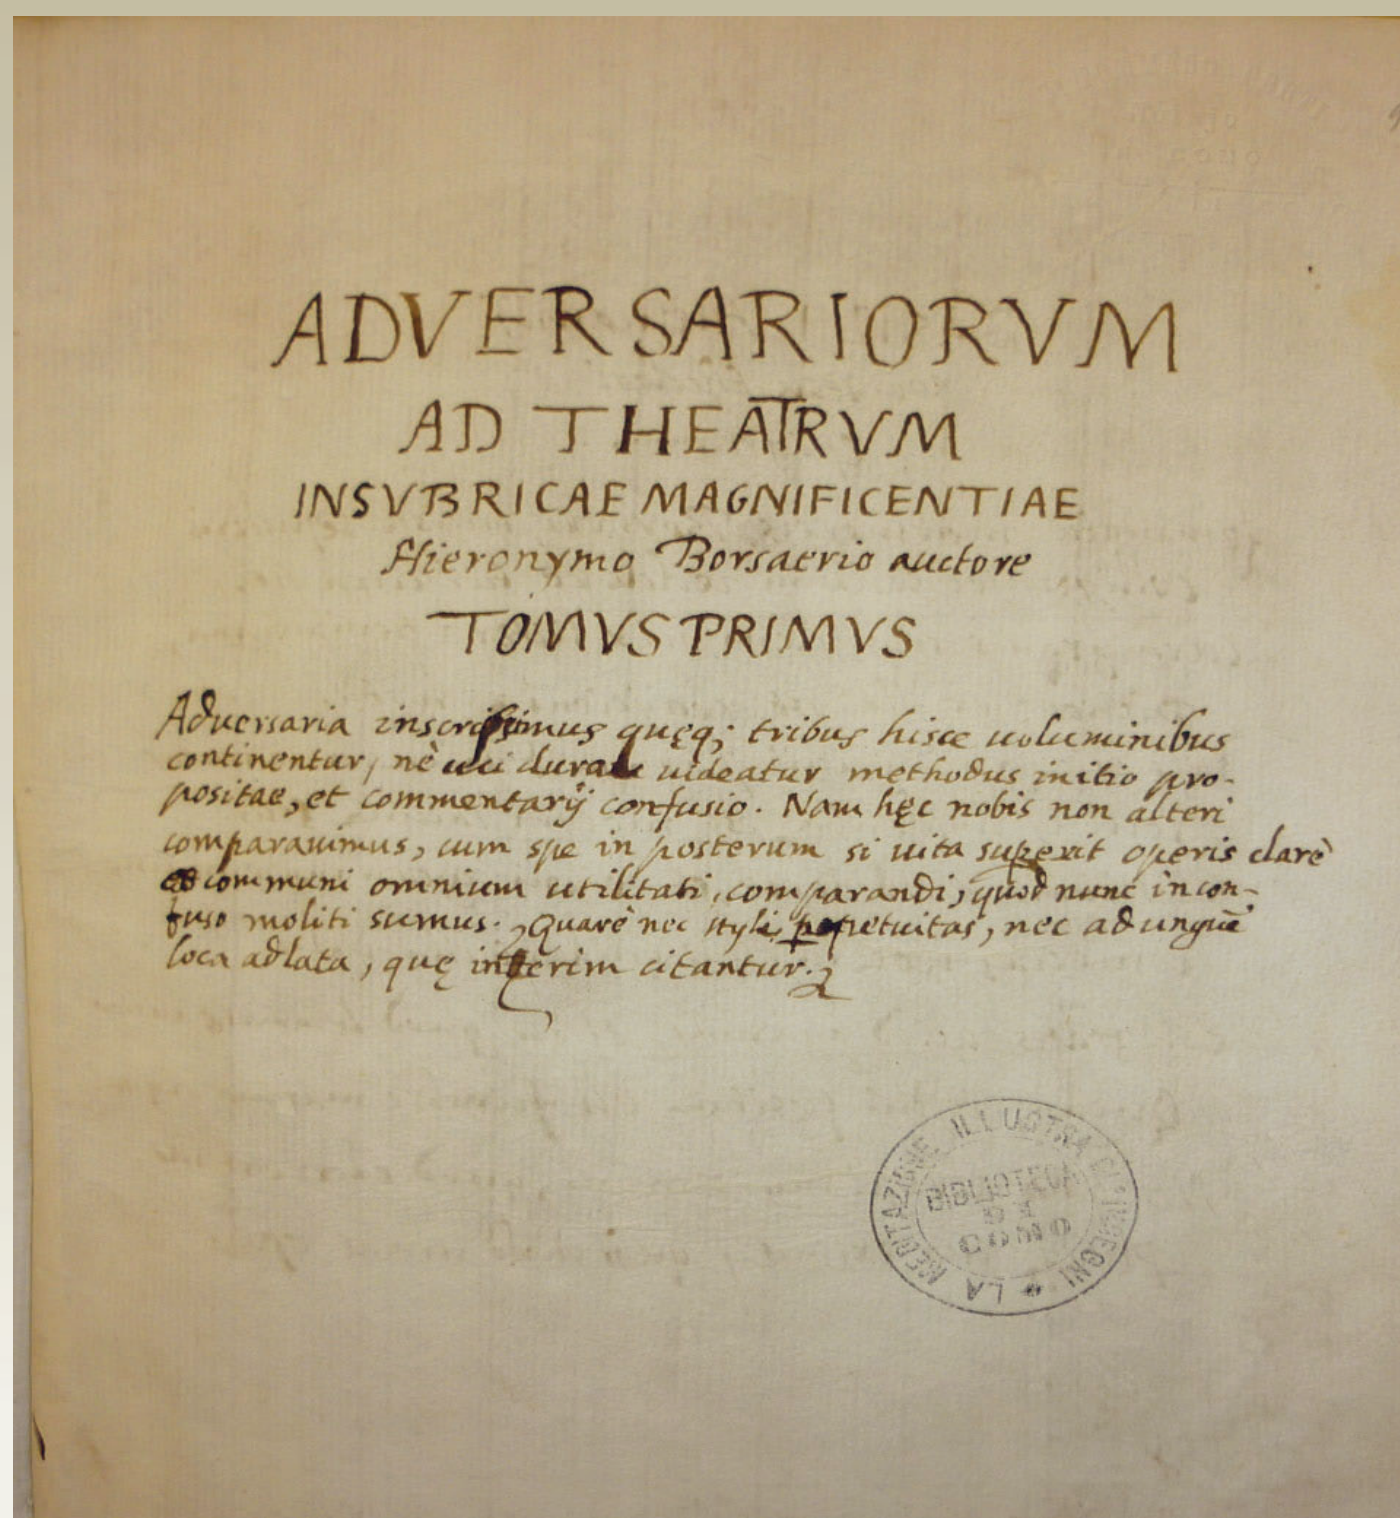 ADVERSARIORVM
AD THEATRVM
INSVBRICAE MAGNIFICENTIAE
Hieronymo Borsaerio auctore
TOMVS PRIMVS
Adversaria inscripsimus quęq; tribus hisce uoluminibus
continentur, nè videatur methodus initio pro-
positae, et commentarÿ confusio. Nam hęc nobis non alteri
comparauimus, cum spe in posterum si uita superit operis clarè
communi omnium utilitati, comparandi, quod nunc in con-
fuso moliti sumus. Quarè nec styli perpetuitas, nec ad unguē
loca adlata, quę interim citantur.
LA MEDITAZIONE ILLUSTRA GL'INGEGNI
BIBLIOTECA
DI
COMO